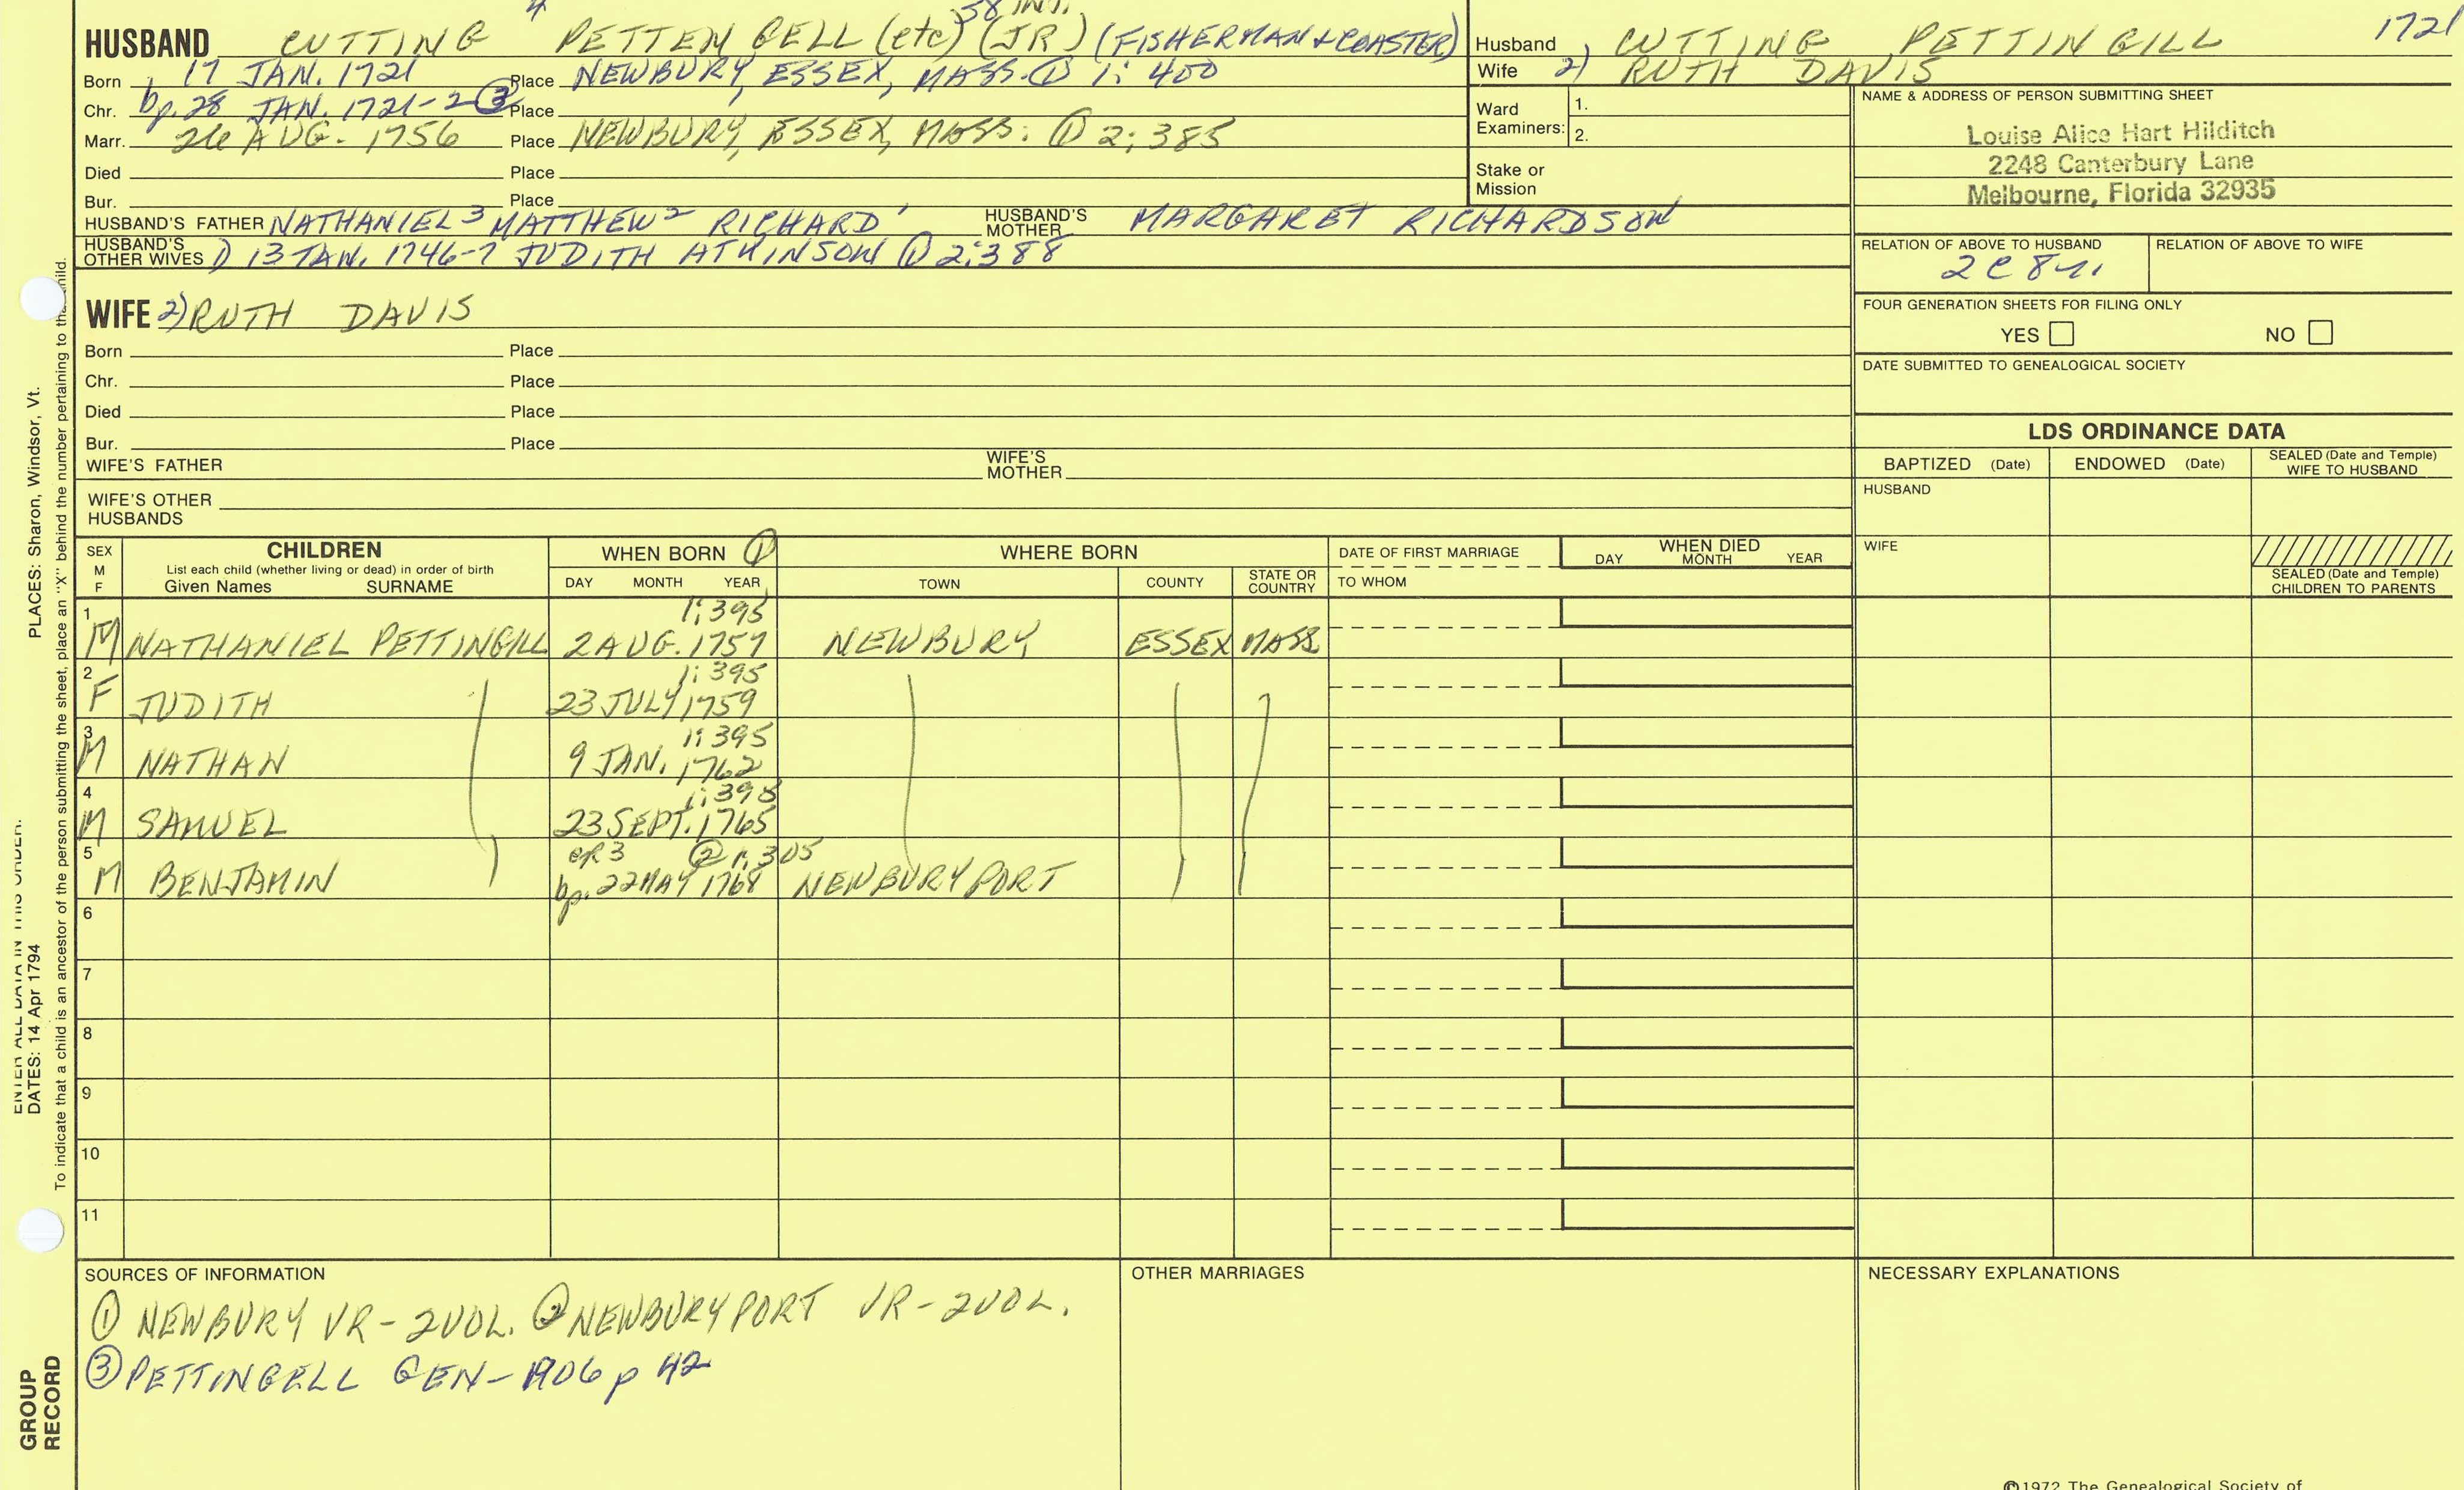 4 58 INT.
HUSBAND CUTTING PETTENGELL (etc) (JR) (FISHERMAN & COASTER)
Born 17 JAN. 1721 Place NEWBURY, ESSEX, MASS. ① 1: 400
Chr. bp. 28 JAN. 1721-2 ③ Place
Marr. 26 AUG. 1756 Place NEWBURY, ESSEX, MASS. ① 2:385
Died Place
Bur. Place
HUSBAND'S FATHER NATHANIEL 3 MATTHEW 2 RICHARD 1 HUSBAND'S MOTHER MARGARET RICHARDSON
HUSBAND'S OTHER WIVES 1) 13 JAN. 1746-7 JUDITH ATKINSON ① 2:388
WIFE 2) RUTH DAVIS
Born Place
Chr. Place
Died Place
Bur. Place
WIFE'S FATHER WIFE'S MOTHER
WIFE'S OTHER HUSBANDS
1721
Husband 1) CUTTING PETTINGILL
Wife 2) RUTH DAVIS
Ward Examiners: 1.
2.
Stake or Mission
NAME & ADDRESS OF PERSON SUBMITTING SHEET
Louise Alice Hart Hilditch
2248 Canterbury Lane
Melbourne, Florida 32935
RELATION OF ABOVE TO HUSBAND RELATION OF ABOVE TO WIFE
2C 8
FOUR GENERATION SHEETS FOR FILING ONLY
YES NO
DATE SUBMITTED TO GENEALOGICAL SOCIETY
LDS ORDINANCE DATA
BAPTIZED (Date) ENDOWED (Date) SEALED (Date and Temple) WIFE TO HUSBAND
HUSBAND
WIFE
SEALED (Date and Temple) CHILDREN TO PARENTS
SEX M F CHILDREN WHEN BORN ① WHERE BORN DATE OF FIRST MARRIAGE WHEN DIED
List each child (whether living or dead) in order of birth
Given Names SURNAME DAY MONTH YEAR TOWN COUNTY STATE OR COUNTRY TO WHOM DAY MONTH YEAR
1 1:395
M NATHANIEL PETTINGILL 2 AUG. 1757 NEWBURY ESSEX MASS.
2 1:395
F JUDITH 23 JULY 1759
3 1:395
M NATHAN 9 JAN. 1762
4 1:395
M SAMUEL 23 SEPT. 1765
5 CR3 ② 1:305
M BENJAMIN bp. 22 MAY 1768 NEWBURYPORT
6
7
8
9
10
11
SOURCES OF INFORMATION
① NEWBURY VR - 2 VOL. ② NEWBURYPORT VR - 2 VOL.
③ PETTINGELL GEN - 1906 p 42
OTHER MARRIAGES
NECESSARY EXPLANATIONS
©1972 The Genealogical Society of
ENTER ALL DATA IN THIS ORDER:
PLACES: Sharon, Windsor, Vt.
DATES: 14 Apr 1794
To indicate that a child is an ancestor of the person submitting the sheet, place an "X" behind the number pertaining to the child.
GROUP
RECORD